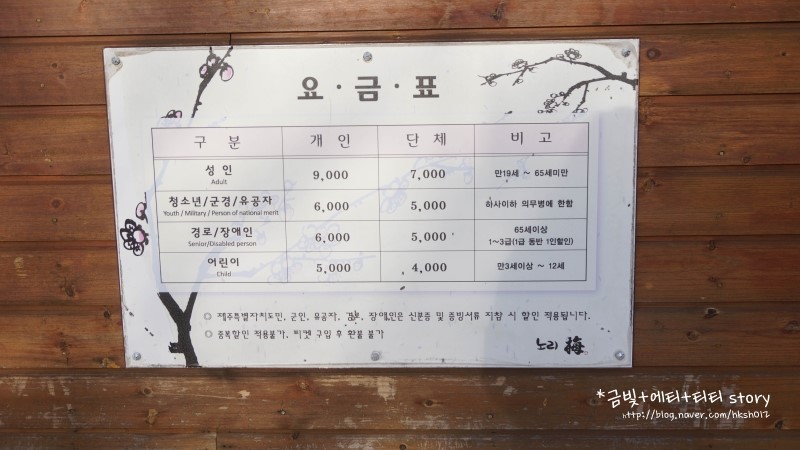 요·금·표
구 분 개 인 단 체 비 고
성 인 9,000 7,000 만19세 ~ 65세미만
Adult
청소년/군경/유공자 6,000 5,000 하사이하 의무병에 한함
Youth / Military / Person of national merit
경로/장애인 6,000 5,000 65세이상
Senior/Disabled person 1~3급(1급 동반 1인할인)
어린이 5,000 4,000 만3세이상 ~ 12세
Child
◎ 제주특별자치도민, 군인, 유공자, 경로, 장애인은 신분증 및 증빙서류 지참 시 할인 적용됩니다.
◎ 중복할인 적용불가, 티켓 구입 후 환불 불가
노리 梅
*금빛+에티+티티 story
http://blog.naver.com/hksh012